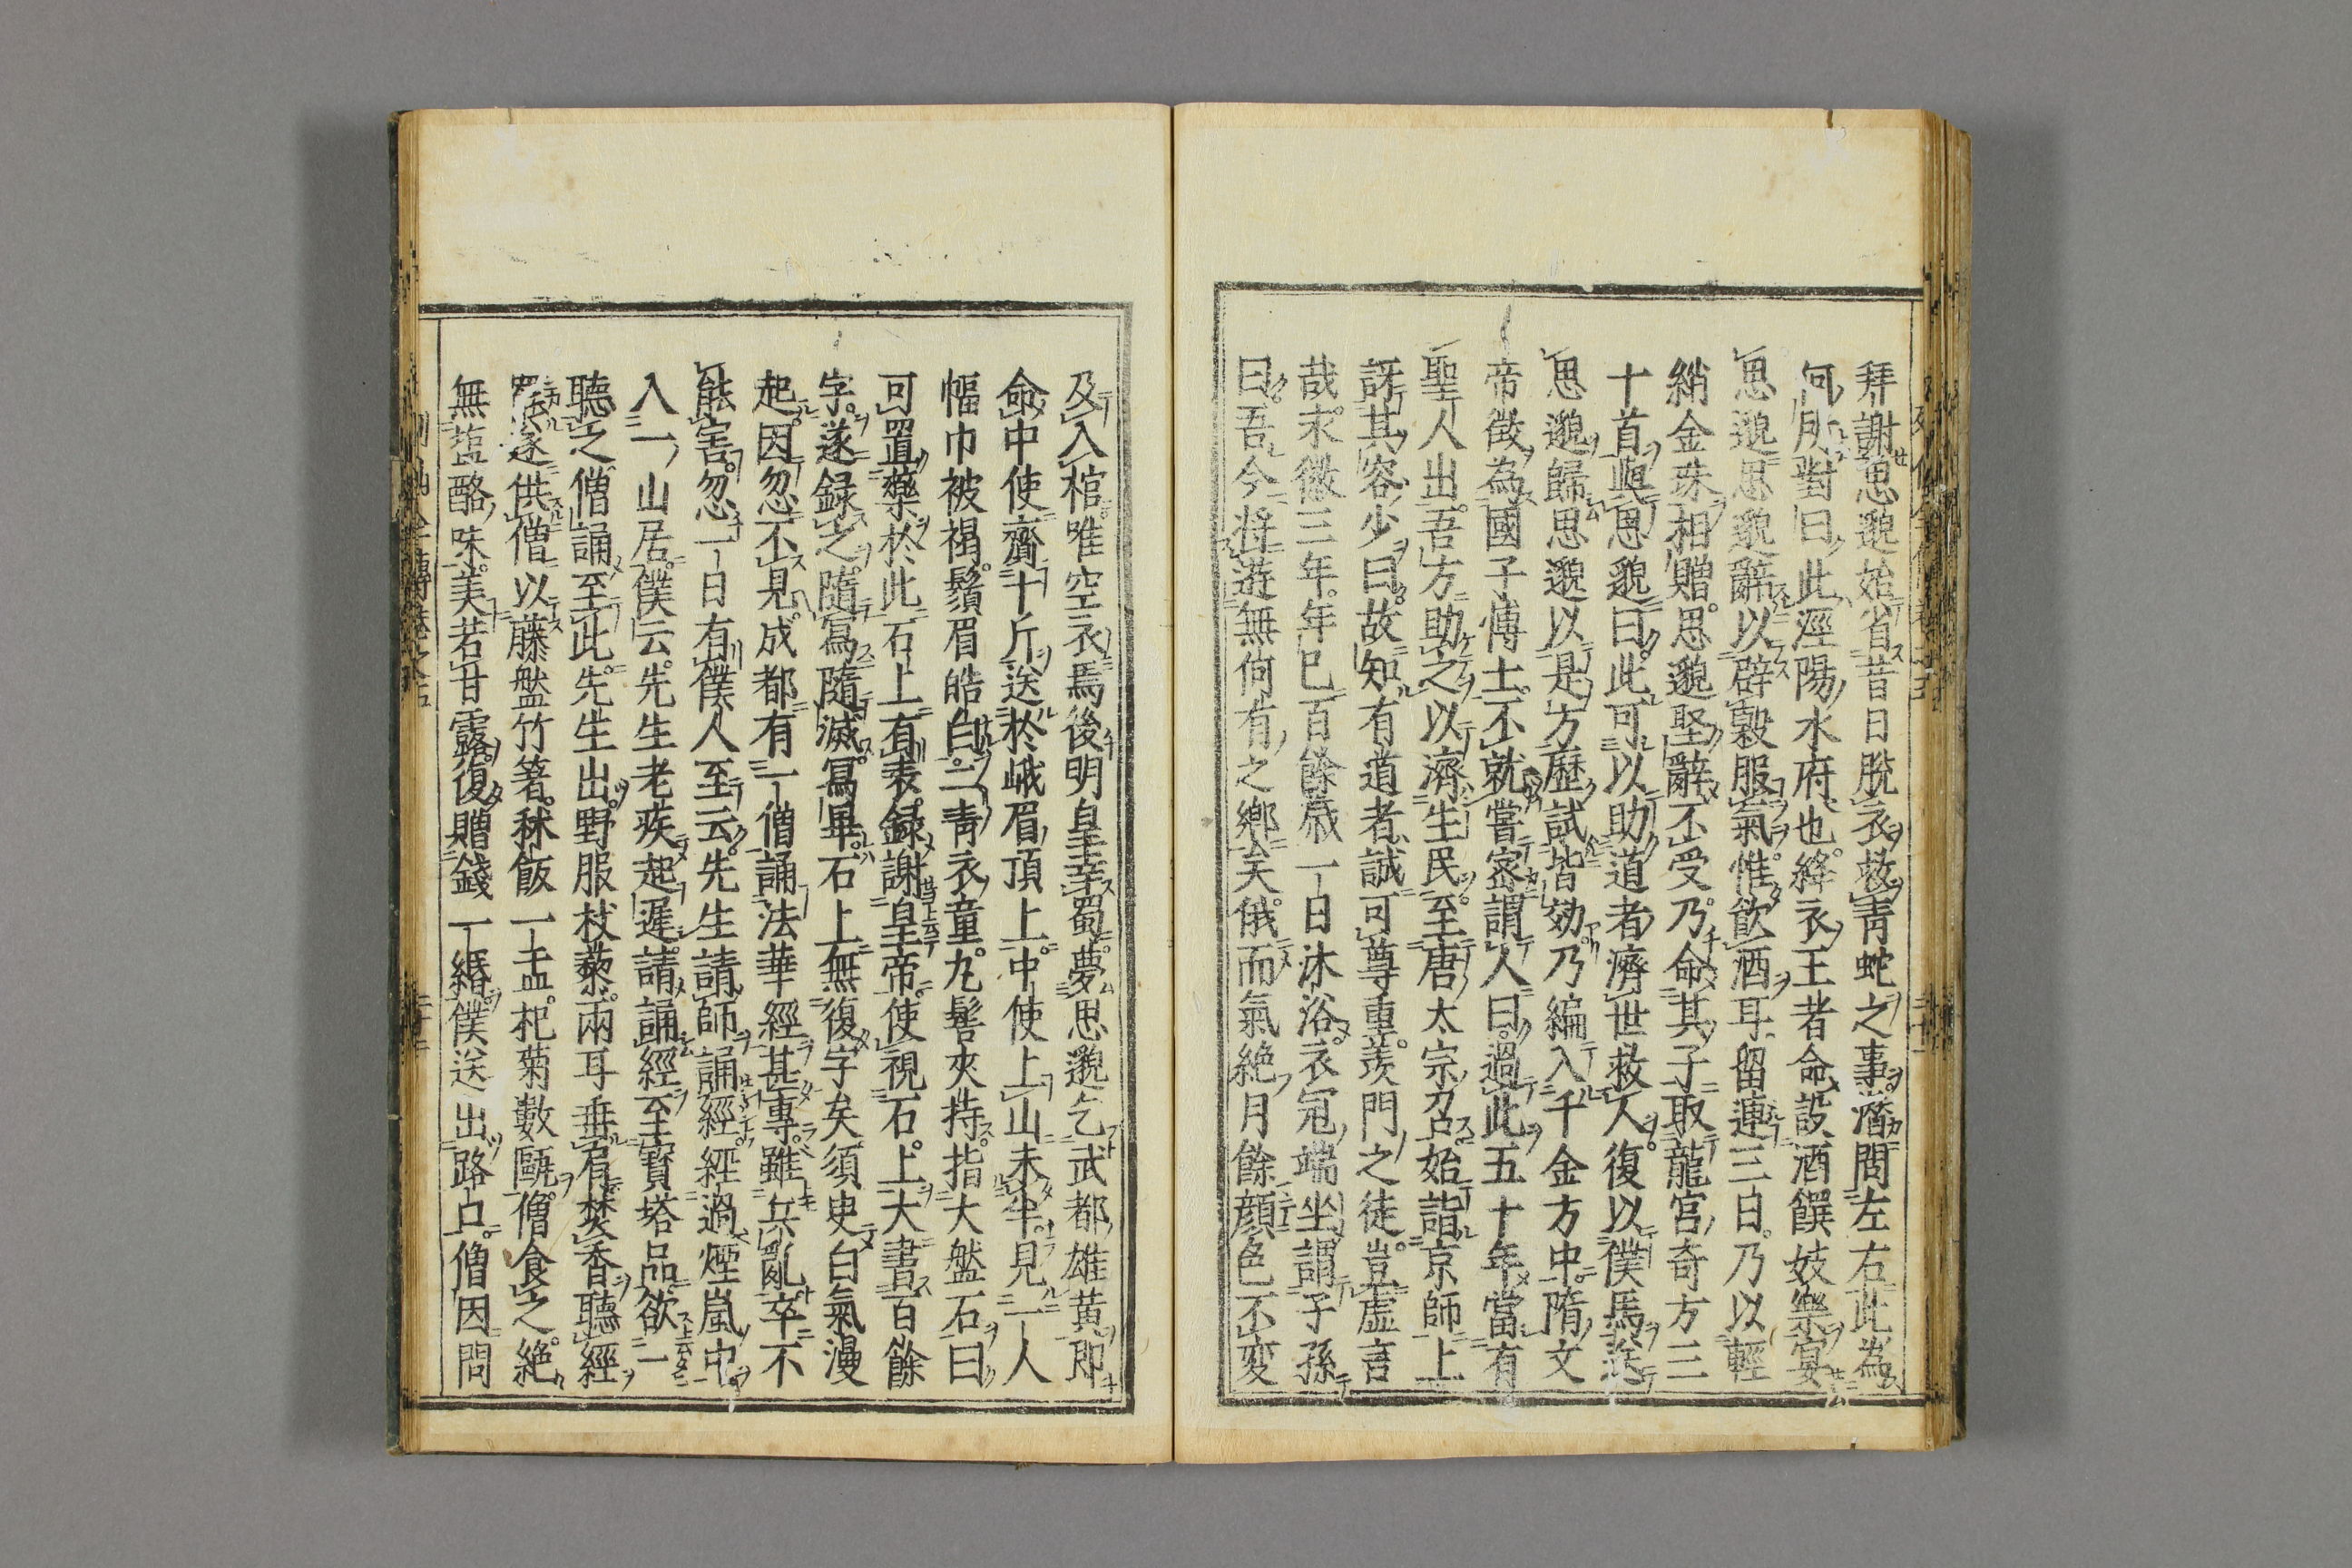 拜謝思邈始省昔日脫衣救靑蛇之事潛問左右此為
何所對曰此涇陽水府也絳衣王者命設酒饌妓樂宴
思邈思邈辭以辟穀服氣惟飮酒耳留連三日乃以輕
綃金珠相贈思邈堅辭不受乃命其子取龍宮奇方三
十首與思邈曰此可以助道者濟世救人復以僕馬送
思邈歸思邈以是方歷試皆効乃編入千金方中隋文
帝徵為國子博士不就嘗密謂人曰過此五十年當有
聖人出吾方助之以濟生民至唐太宗召始詣京師上
訝其容少曰故知有道者誠可尊重羨門之徒豈虛言
哉永徽三年年已百餘歲一日沐浴衣冠端坐謂子孫
曰吾今將遊無何有之鄉矣俄而氣絶月餘顔色不変
及入棺唯空衣焉後明皇幸蜀夢思邈乞武都雄黄即
命中使齎十斤送於峨眉頂上中使上山未半見一人
幅巾被褐鬚眉皓白二靑衣童丸髻夾持指大盤石曰
可置藥於此石上有表録謝皇帝使視石上大書百餘
字遂録之隨寫隨滅寫畢石上無復字矣須臾白氣漫
起因忽不見成都有一僧誦法華經甚專雖兵亂卒不
能害忽一日有僕人至云先生請師誦經經過煙嵐中
入一山居僕云先生老疾起遲請誦經至寶塔品欲一
聽之僧誦至此先生出野服杖藜兩耳垂肩焚香聽經
罷遂供僧以藤盤竹箸秫飯一盂杞菊數甌僧食之絶
無塩酪味美若甘露復贈錢一緡僕送出路口僧因問